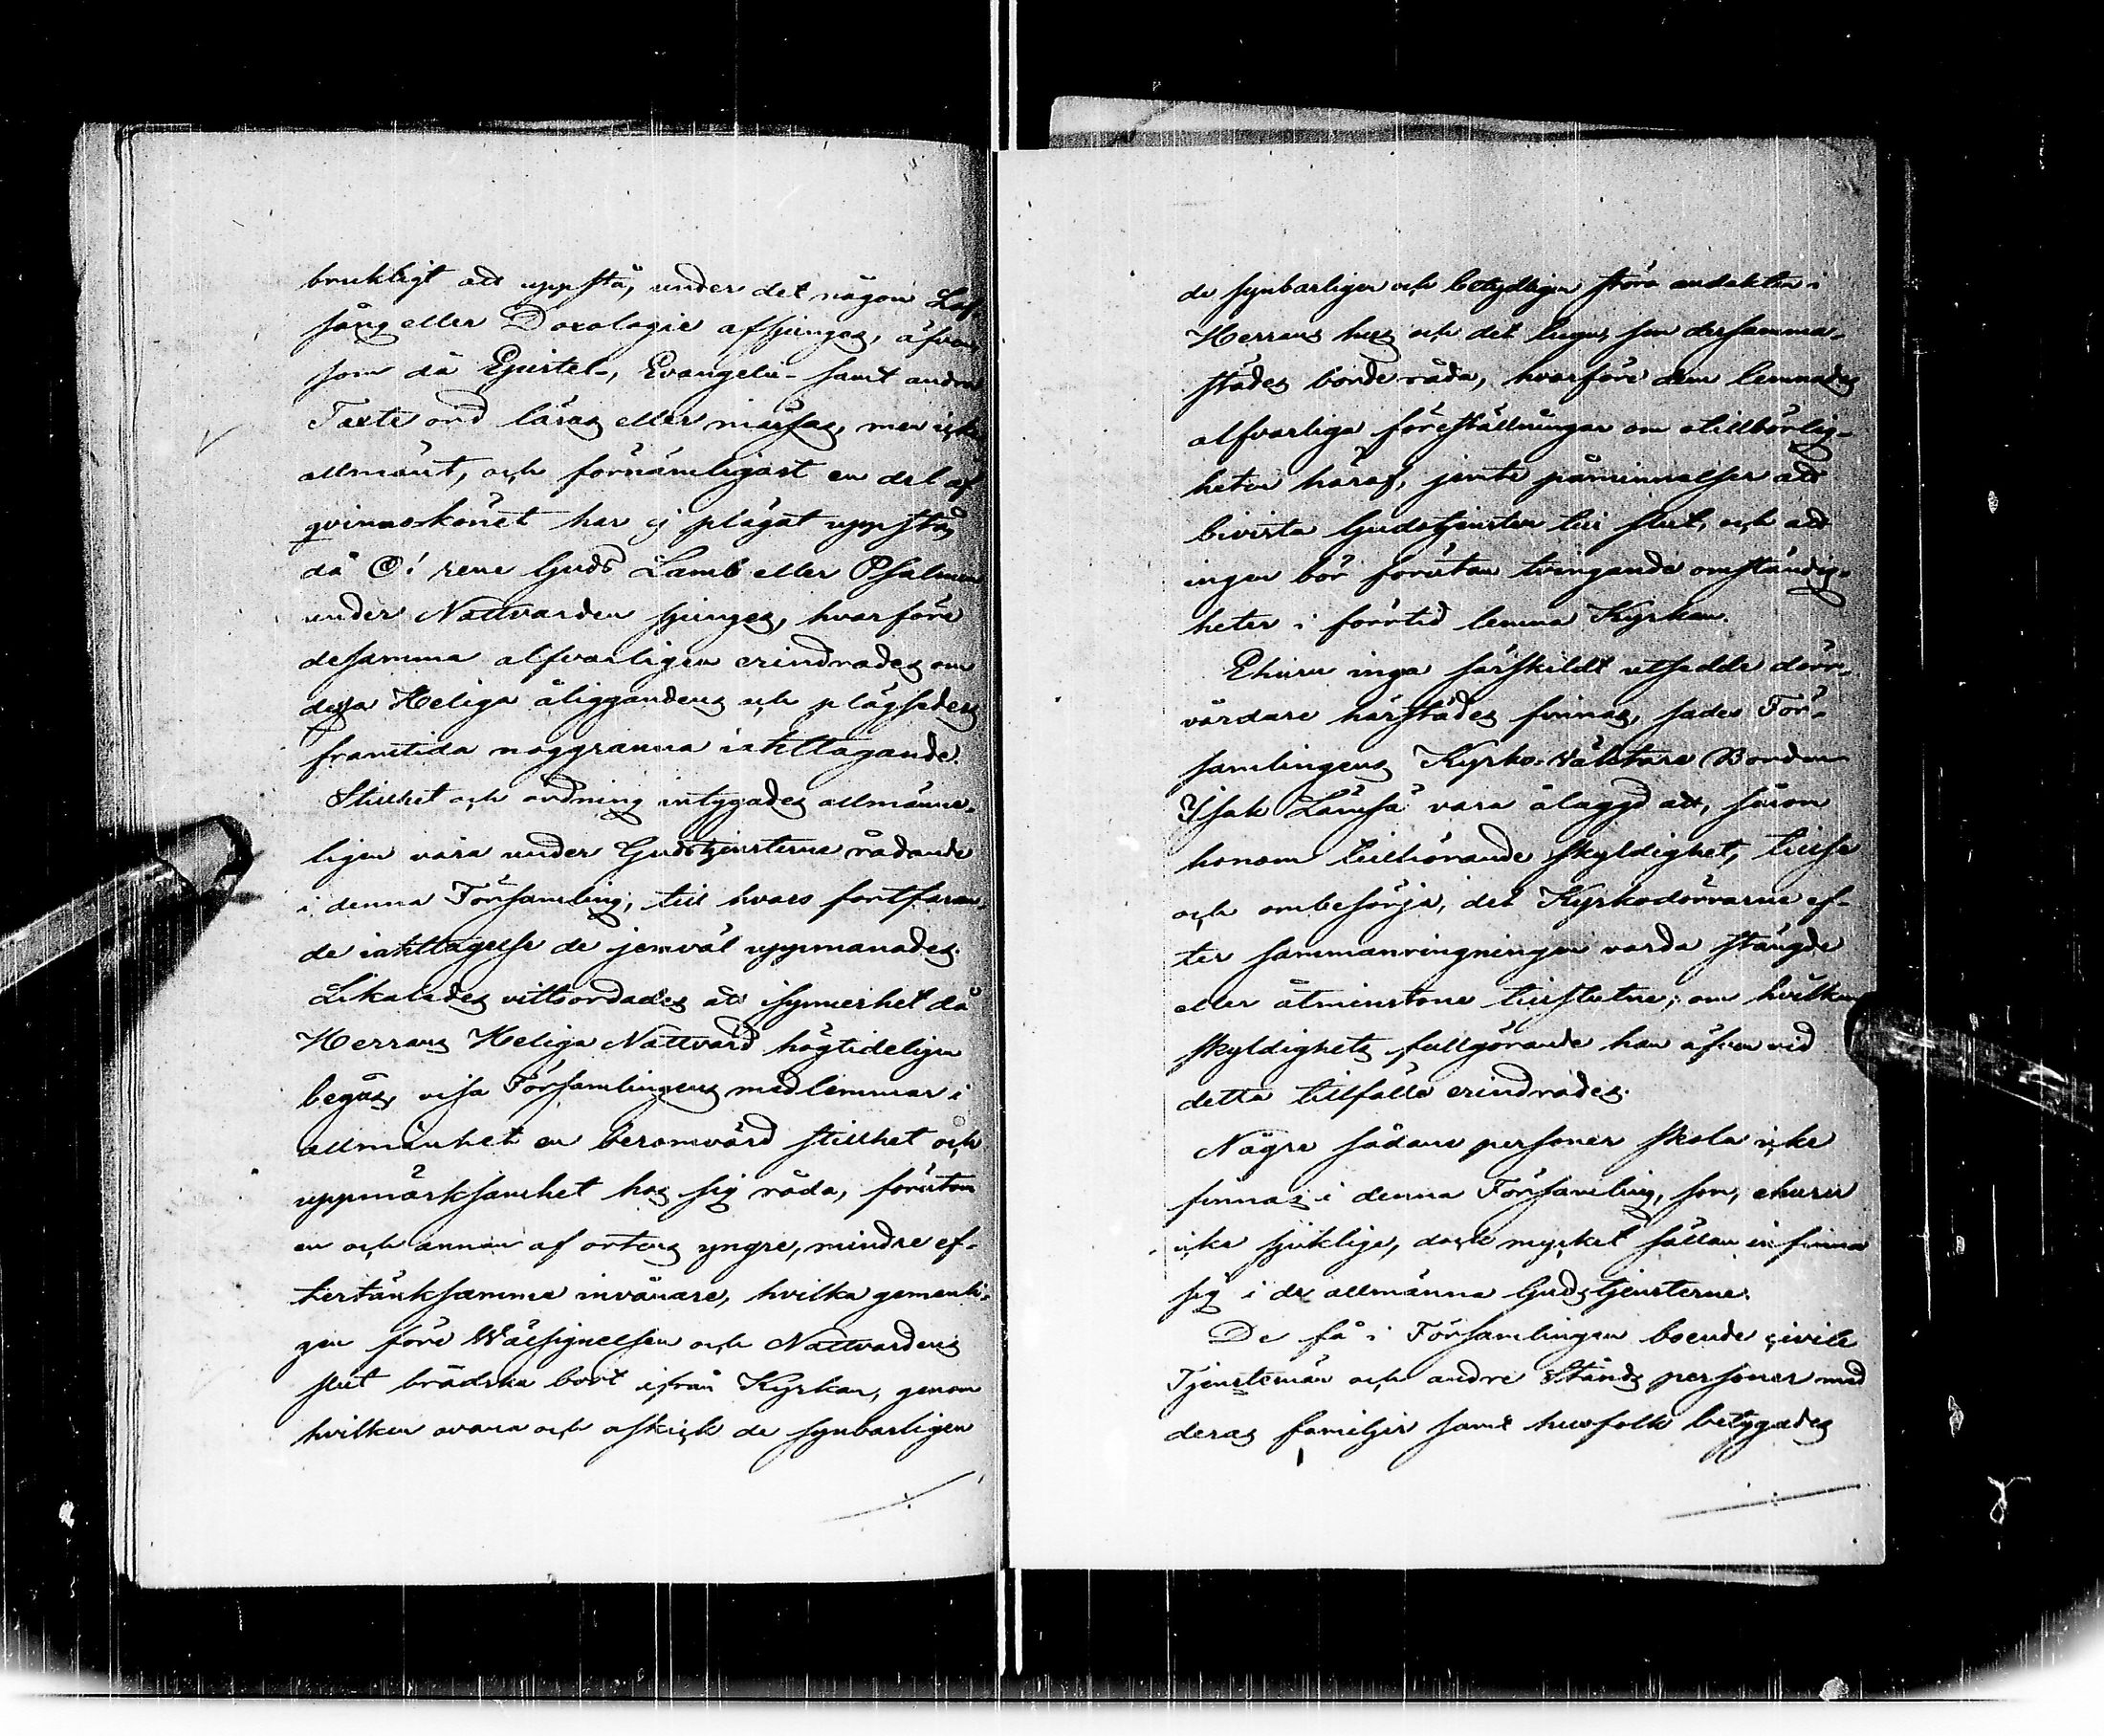 brukligt att uppstå, under det någon Lof
sång eller Doxologie afsjunges, äfven
som då Epistel-, Evangelii- samt andra
Texte ord läsas eller mässas, men icke
allmänt, och förnämligast en del af
qvinnokönet har ej plägat uppstå,
då O! rene Guds Lamb eller Psalmen
under Nattvarden sjunges, hvarföre
desamma alfvarligen erindrades om
dessa Heliga åliggandens och plägseders
framtida noggranna iakttagande.
Stillhet och ordning intygades allmänne-
ligen vara under Gudstjensterne rådande
i denna Församling, till hvars fortfaran-
de iakttagelse de jemväl uppmanades.
Likaledes vittsordades att isynnerhet då
Herrans Heliga Nattvard högtideligen
begås, visa Församlingens medlemmar i
allmänhet en berömvärd stillhet och
uppmärksamhet hos sig råda, förutom
en och annan af ortens yngre, mindre ef-
tertänksamme invånare, hvilka gemenli-
gen före Wälsignelsen och Nattvardens
slut brådska bort ifrån Kyrkan, genom
hvilken ovana och oskick de synbarligen
de synbarligen och betydligen störa andakten i
Herrans hus och det lugn, som dersamma-
städes borde råda, hvarföre dem lemnades
alfvarliga föreställningar om otillbörlig-
heten häraf, jemte påminnelser att
bivista Gudstjensten till slut, och att
ingen bör förutan tvingande omständig-
heter i förtid lemna Kyrkan.
Ehuru inga särskildt utsedde dörr-
vårdare härstädes finnas, sades För-
samlingens Kyrko-Wäktare Bonden
Isak Lämsä vara ålaggd att, såsom
honom tillhörande skyldighet, tillse
och ombesörja, det Kyrkodörrarne ef-
ter sammanringningen varda stängde
eller åtminstone tillslutne; om hvilken
skyldighets fullgörande han äfven vid
detta tillfälle erindrades.
Några sådane personer skola icke
finnas i denna Församling, som, ehuru
icke sjuklige, dock mycket sällan infinna
sig i de allmänna Gudstjensterne.
De få i Församlingen boende civile
Tjenstemän och andre Stånds personer med
deras familjer samt husfolk betygades